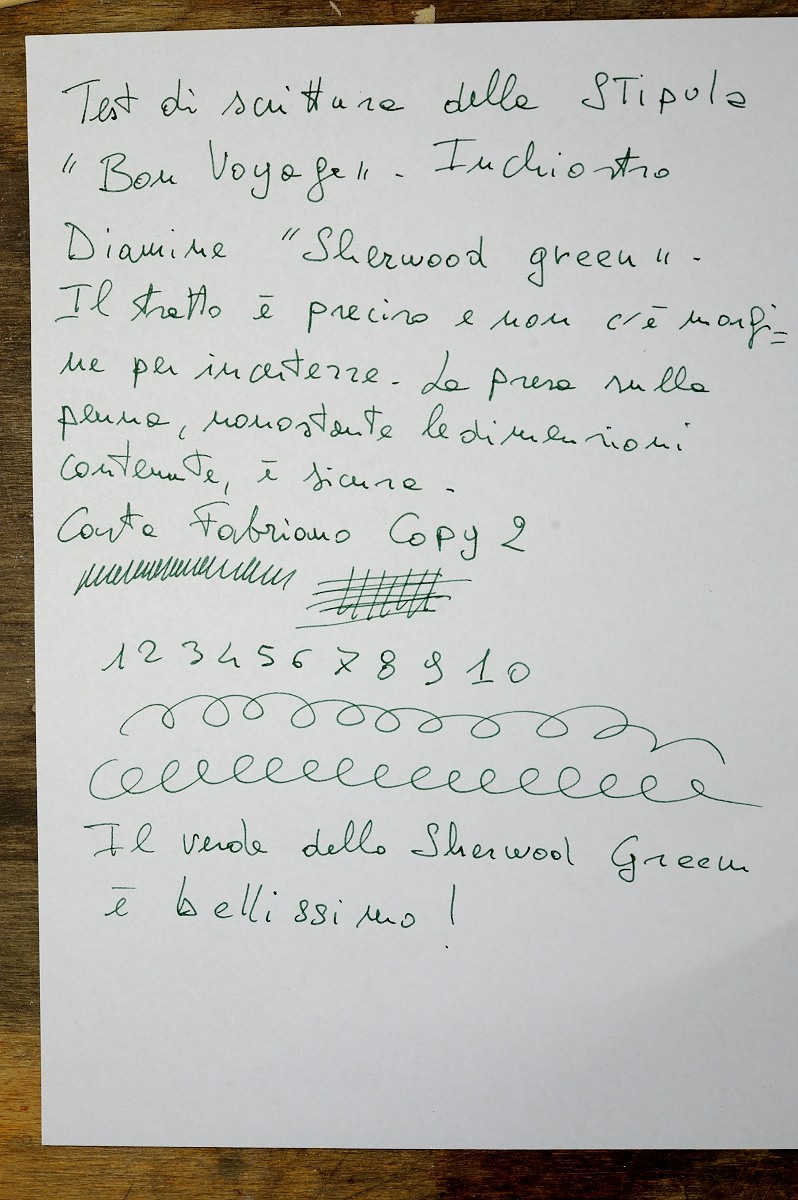 Test di scrittura della STipula
"Bon Voyage". Inchiostro
Diamine "Sherwood green".
Il tratto è preciso e non c'è margi=
ne per incertezze. La presa sulla
penna, nonostante le dimensioni
contenute, è sicura.
Carta Fabriano Copy 2
1 2 3 4 5 6 7 8 9 10
Il verde dello Sherwood Green
è bellissimo!